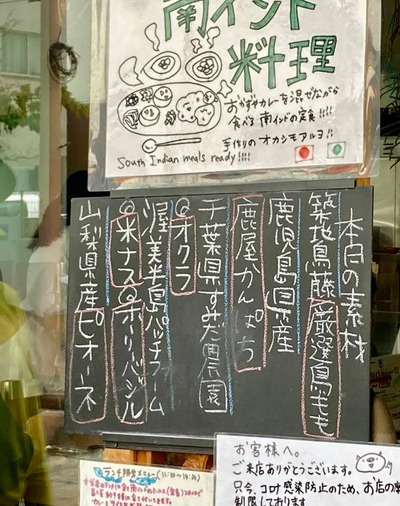 南インド
料理
おかずやカレーを混ぜながら
食べる南インドの定食!!!!
手作りのオカシモアルヨ!!
South Indian meals ready!!!!
本日の素材
築地鳥藤 厳選鳥もも
鹿児島県産
鹿屋かんぱち
千葉県すみだ農園
@オクラ
渥美半島パッチファーム
@米ナス@ホーリーバジル
山梨県産ピオーネ
お客様へ。
ご来店ありがとうございます。
只今、コロナ感染防止のため、お店の
制限しております
ランチ限定メニュー